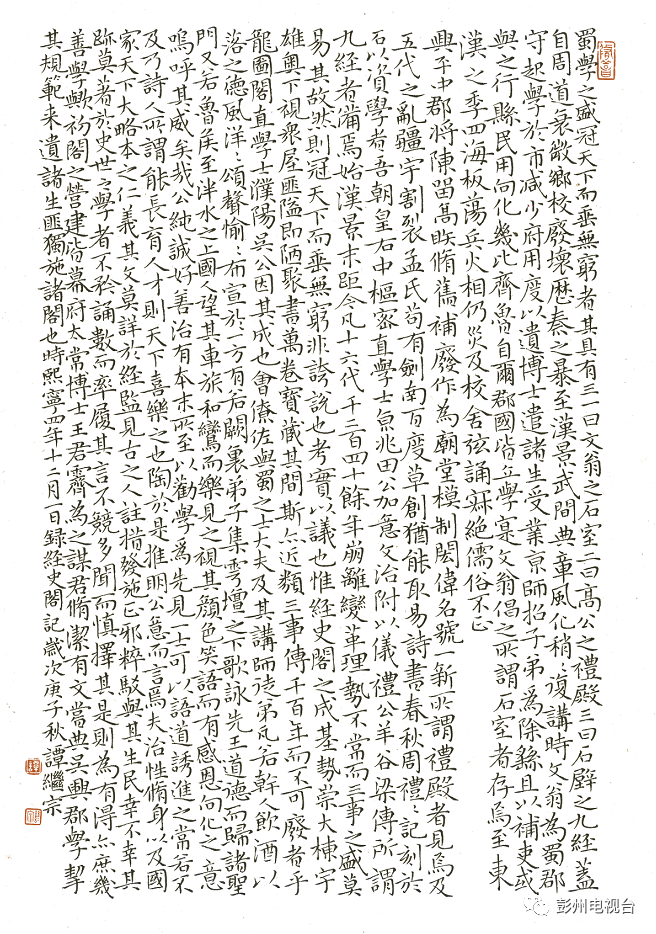 蜀學之盛冠天下而垂無窮者其具有三一曰文翁之石室二曰高公之禮殿三曰石壁之九經蓋
自周道衰微鄉校廢壞歷秦之暴至漢景武間典章風化稍〻復講時文翁為蜀郡
守起學於市減少府用度以遺博士遣諸生受業京師招子弟為除繇且以補吏或
與之行縣民用向化幾比齊魯自爾郡國皆立學寔文翁倡之所謂石室者存焉至東
漢之季四海板蕩兵火相仍災及校舍弦誦寂絕儒俗不正
興平中郡將陳留高眹脩舊補廢作為廟堂模制閎偉名號一新所謂禮殿者見焉及
五代之亂疆宇割裂孟氏苟有劍南百度草創猶能取易詩書春秋周禮〻記刻於
石以資學者吾朝皇右中樞密直學士京兆田公加意文治附以儀禮公羊谷梁傳所謂
九經者備焉始漢景末距今凡十六代千二百四十餘年崩離變革理勢不常而三事之盛莫
易其故然則冠天下而垂無窮非誇說也考實以議也惟經史閣之成基勢崇大棟宇
雄奧下視眾屋匪隘即陋聚書萬卷寶藏其間斯亦近類三事傳千百年而不可廢者乎
龍圖閣直學士濮陽吳公因其成也會僚佐與蜀之士大夫及其講師徒弟凡若幹人飲酒以
落之德風洋〻頌聲愉〻布宣於一方有若闕裏弟子集雩壇之下歌詠先王道德而歸諸聖
門又若魯矦至泮水之上國人望其車旂和鸞而樂見之視其顏色笑語而有感恩向化之意
嗚呼其感矣哉公純誠好善治有本末所至以勸學為先見一士可以語道誘進之常若不
及乃詩人所謂能長育人才則天下喜樂之也陶於是推明公意而言焉夫治性脩身以及國
家天下大略本之仁義其文莫詳於經監見古之人註楷發施正邪粹駁與其生民幸不幸其
跡莫著於史世之學者不矜誦數而率履其言不競多聞而慎擇其是則為有得亦庶幾
善學歟初閣之營建皆幕府太常博士王君霽為之謀君脩潔有文嘗典吳興郡學挈
其規範來遺諸生匪獨施諸閣也時熙寧四年十二月一日錄經史閣記歲次庚子秋譚繼宗
彭州电视台